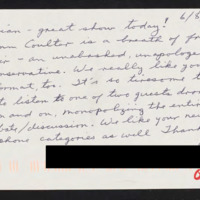 ian - great show today! 6/6
nn Coulter is a breath of fr
er - an unabashed, unapologe
onservative. We really like you
ormat, too. It's so tiresome t
to listen to one of two guests dro
n and on, monopolizing the entir
bate/discussion. We like your ne
phone categories as well Thank